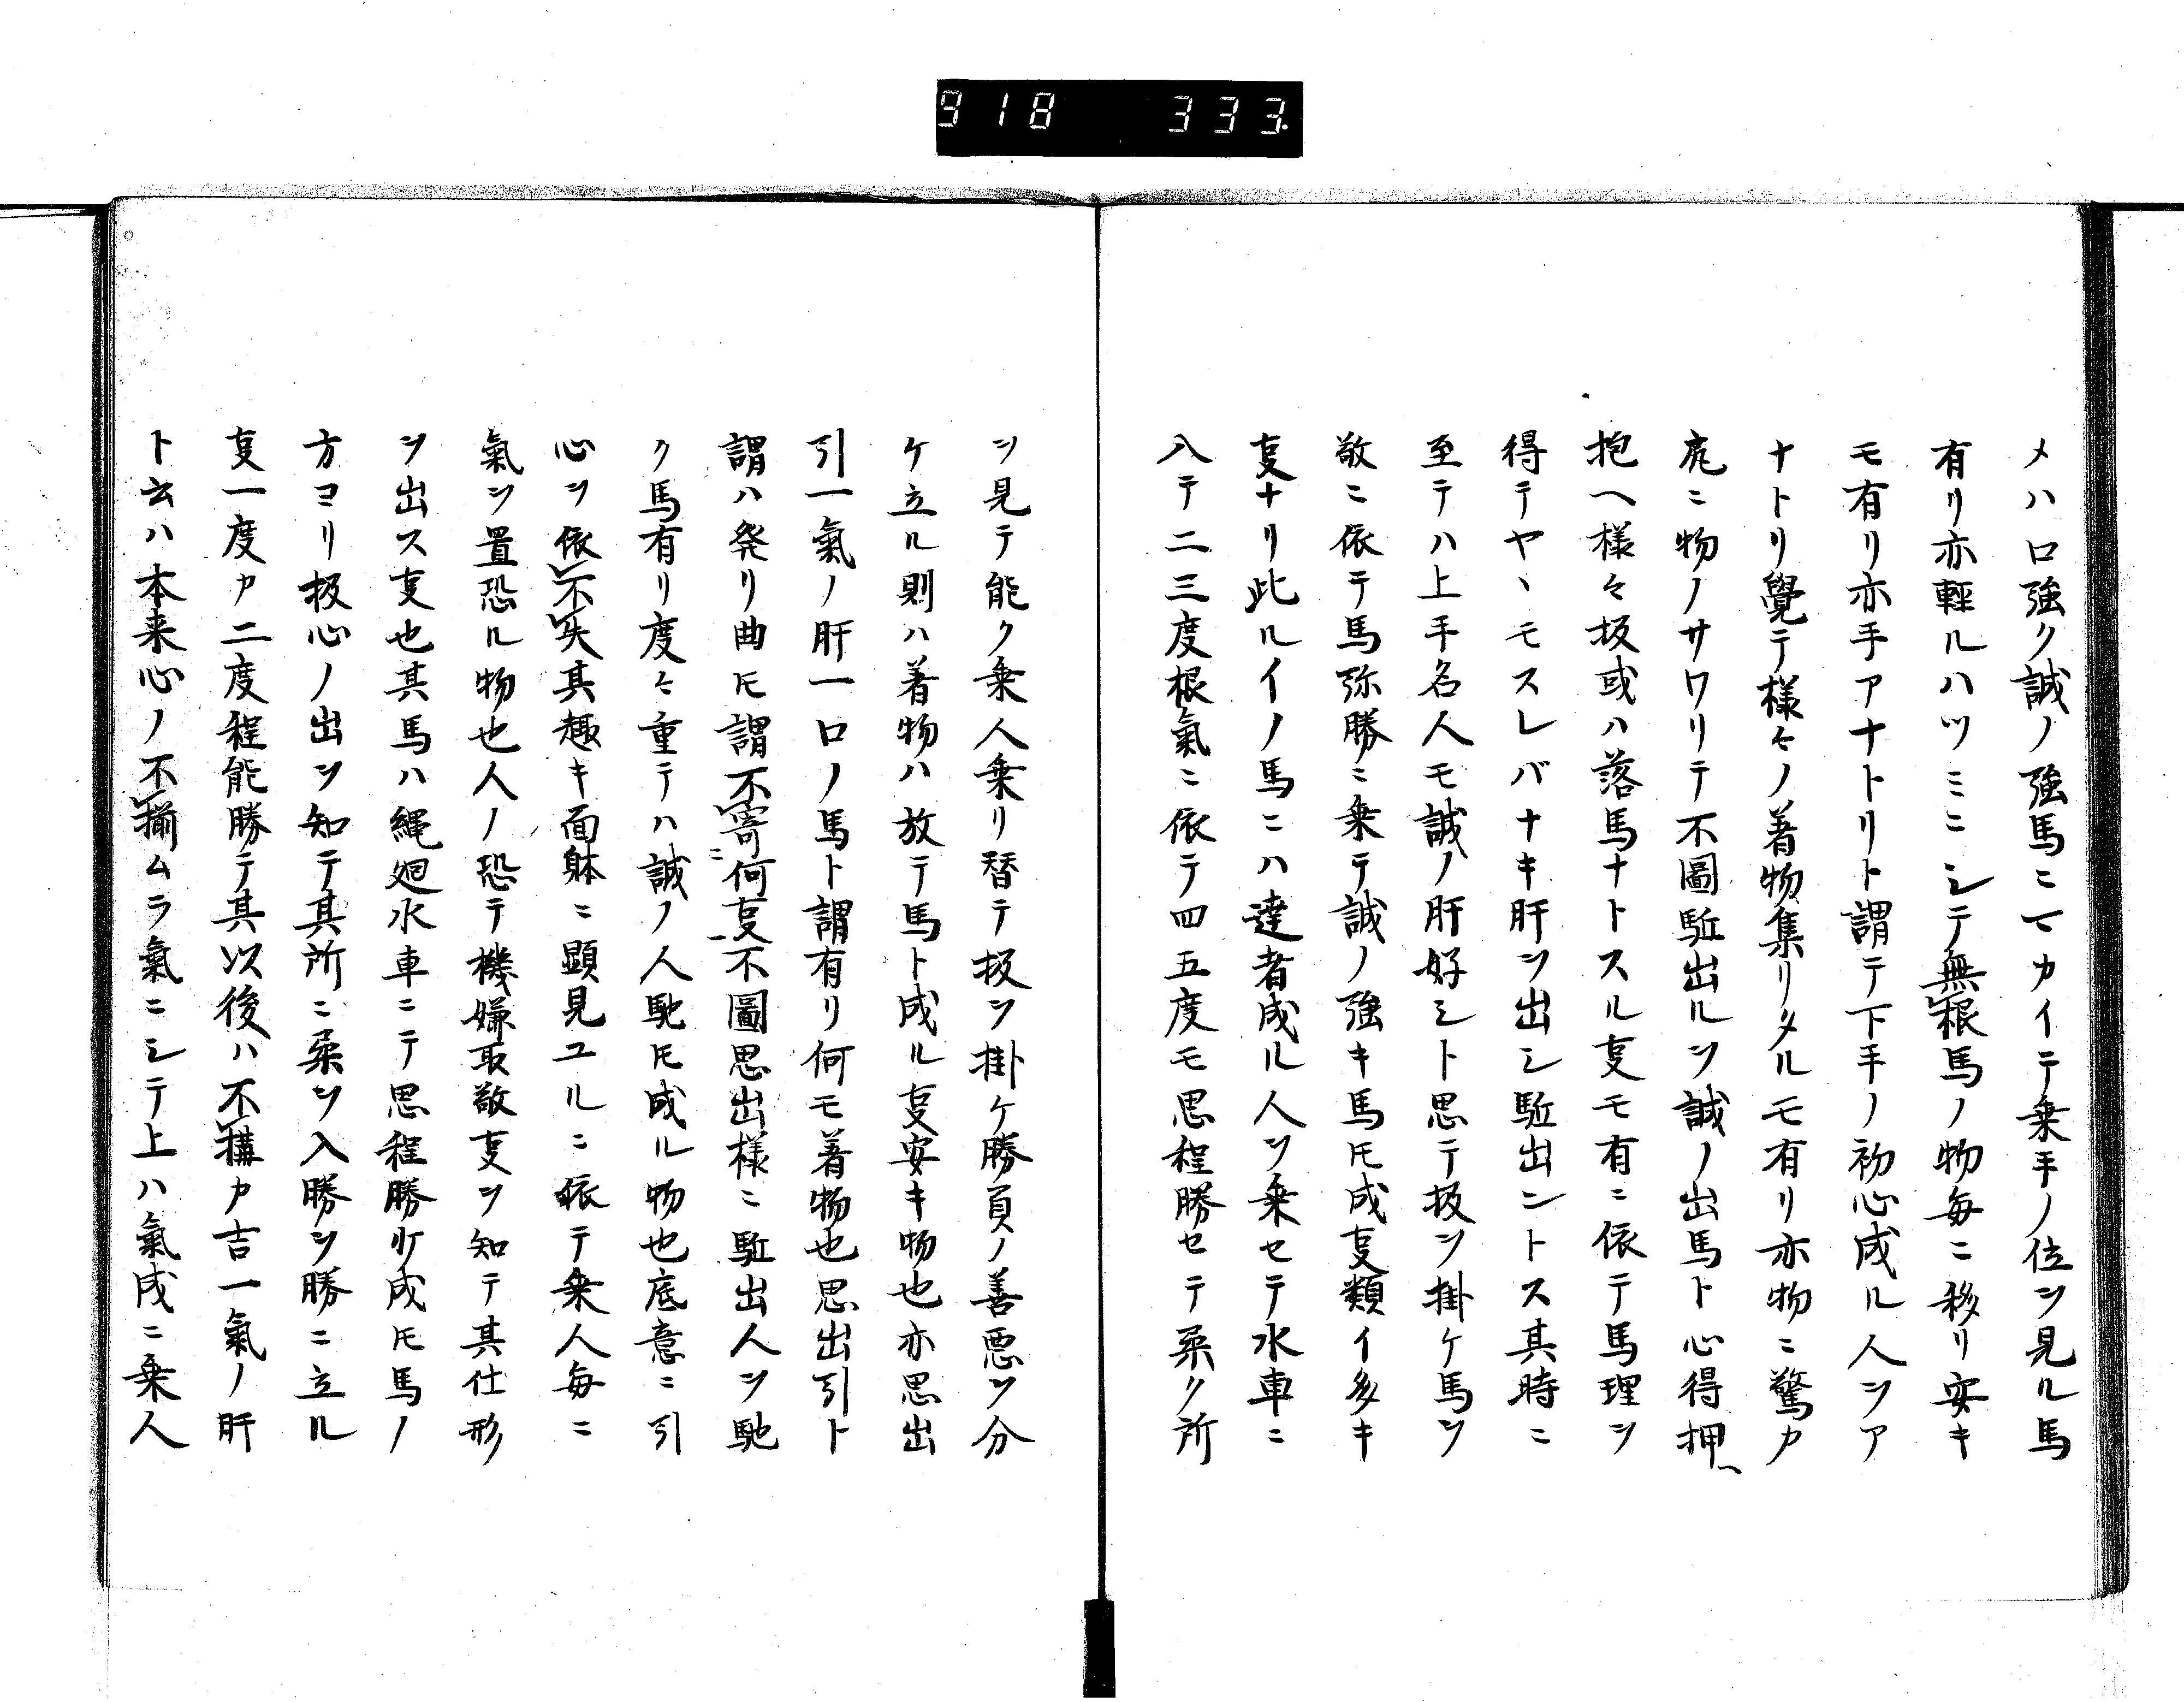 918 333.
メハ口強ク誠ノ強馬ニマカイテ乗手ノ位ヲ見ル馬
有リ亦輕ルハツミニシテ無根馬ノ物毎ニ移リ安キ
モ有リ亦手アナトリト謂テ下手ノ初心成ル人ヲア
ナトリ覺テ様々ノ著物集リタルモ有リ亦物ニ驚カ
ニ物ノサワリテ不圖駈出ルヲ誠ノ出馬ト心得押ヘ
抱ヘ様々扱或ハ落馬ナトスル叓モ有ニ依テ馬理ヲ
得テヤヽモスレバナキ肝ヲ出シ駈出ントス其時ニ
至テハ上手名人モ誠ノ肝好シト思テ扱ヲ掛ケ馬ヲ
敬ニ依テ馬弥勝ニ乗テ誠ノ強キ馬𪜈成叓類イ多キ
叓ナリ此ルイノ馬ニハ達者成ル人ヲ乗セテ水車ニ
八テ二三度根氣ニ依テ四五度モ思程勝セテ柔ク所
ヲ見テ能ク乗人乗リ替テ扱ヲ掛ケ勝負ノ善悪ヲ分
ケ立ル則ハ著物ハ放テ馬ト成ル叓安キ物也亦思出
引一氣ノ肝一口ノ馬ト謂有リ何モ著物也思出引ト
謂ハ発リ曲𪜈謂不寄何叓不圖思出様ニ駈出人ヲ馳
ク馬有リ度々重テハ誠ノ人馳𪜈成ル物也底意ニ引
心ヲ依不失其趣キ面躰ニ顕見ユルニ依テ乗人毎ニ
氣ヲ置恐ル物也人ノ恐テ機嫌取敬叓ヲ知テ其仕形
ヲ出ス叓也其馬ハ縄廻水車ニテ思程勝成𪜈馬ノ
方ヨリ扱心ノ出ヲ知テ其所ニ柔ヲ入勝ヲ勝ニ立ル
叓一度カ二度程能勝テ其以後ハ不構カ吉一氣ノ肝
ト云ハ本来心ノ不揃ムラ氣ニシテ上ハ氣成ニ乗人